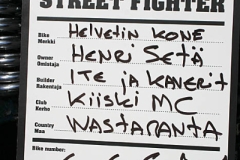 STREET FIGHTER
Bike
Merkki HELVETIN KONE
Owner
Omistaja HENRI SETÄ
Builder
Rakentaja ITE JA KAVERIT
Club
Kerho KIISKI MC
Country
Maa WASTARANTA
Bike number: